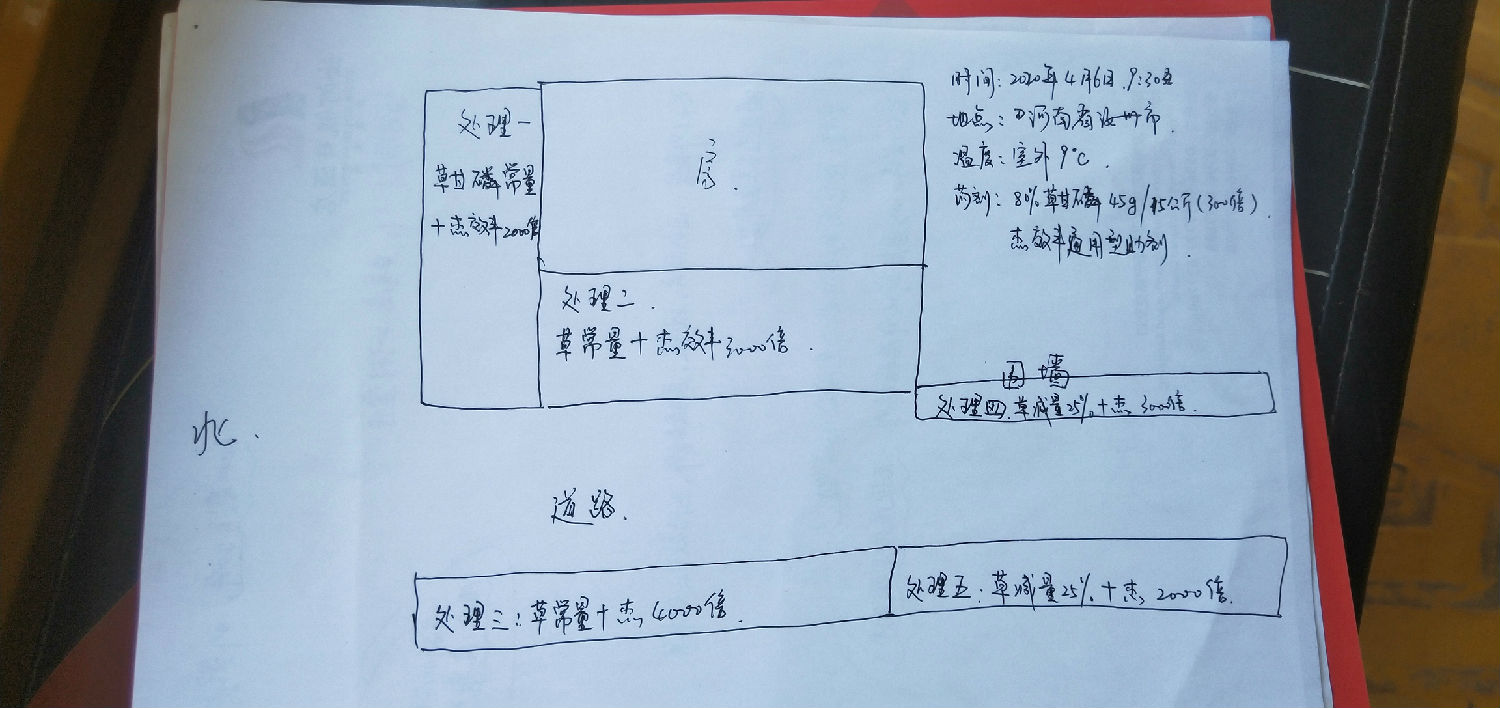 处理一
草甘磷常量
+杰效率2000倍
房.
处理二.
草常量+杰效率3000倍.
时间:2020年4月6日.9:30
地点:河南省汝州市.
温度:室外9℃.
药剂:80%草甘磷45g/15公斤(300倍).
杰效率通用型助剂.
围墙
处理四.草减量25%+杰3000倍.
北.
道路.
处理三:草常量+杰4000倍.
处理五:草减量25%+杰2000倍.